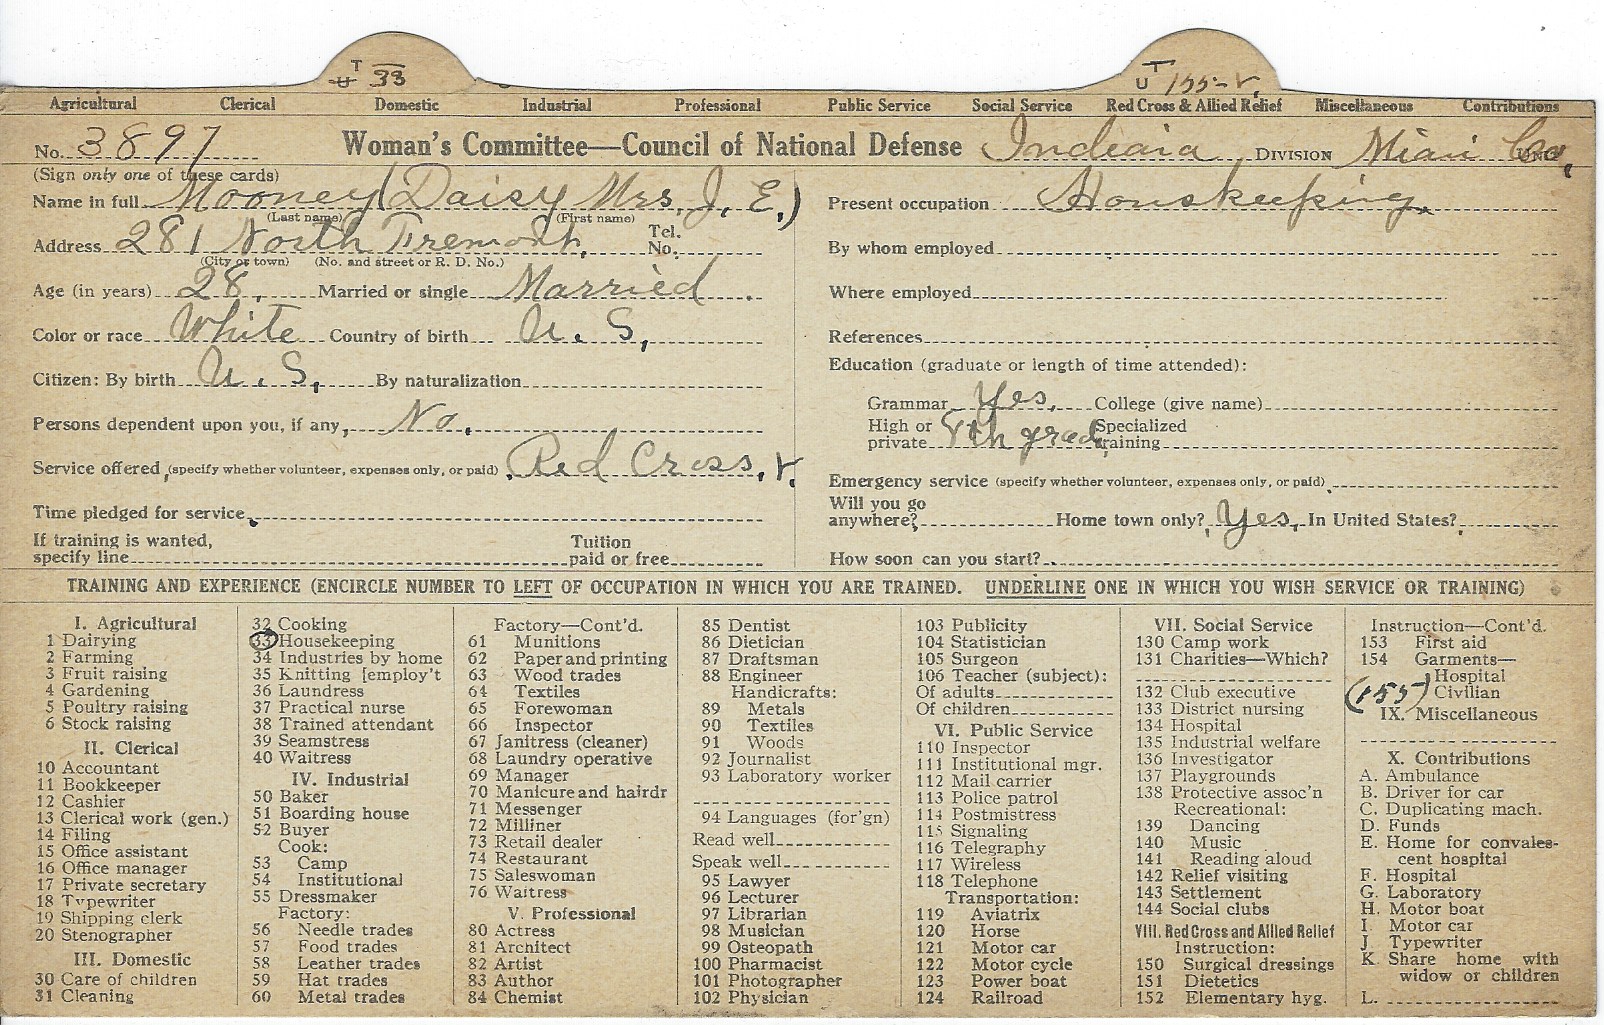 T T
U 33 U 155-v.
Agricultural Clerical Domestic Industrial Professional Public Service Social Service Red Cross & Allied Relief Miscellaneous Contributions
No. 3897 Woman's Committee—Council of National Defense Indiana DIVISION Miami Co. UNIT
(Sign only one of these cards)
Name in full Mooney (Daisy Mrs. J. E.)
(Last name) (First name)
Address 281 North Fremont. Tel. No.
(City or town) (No. and street or R. D. No.)
Age (in years) 28. Married or single Married.
Color or race White Country of birth U. S.
Citizen: By birth U. S. By naturalization
Persons dependent upon you, if any, No.
Service offered (specify whether volunteer, expenses only, or paid) Red Cross, v.
Time pledged for service
If training is wanted, specify line Tuition paid or free
Present occupation Houskeeping.
By whom employed
Where employed
References
Education (graduate or length of time attended):
Grammar Yes, College (give name)
High or private 8th grade, Specialized training
Emergency service (specify whether volunteer, expenses only, or paid)
Will you go anywhere? Home town only? Yes, In United States?
How soon can you start?
TRAINING AND EXPERIENCE (ENCIRCLE NUMBER TO LEFT OF OCCUPATION IN WHICH YOU ARE TRAINED. UNDERLINE ONE IN WHICH YOU WISH SERVICE OR TRAINING)
I. Agricultural
1 Dairying
2 Farming
3 Fruit raising
4 Gardening
5 Poultry raising
6 Stock raising
II. Clerical
10 Accountant
11 Bookkeeper
12 Cashier
13 Clerical work (gen.)
14 Filing
15 Office assistant
16 Office manager
17 Private secretary
18 Typewriter
19 Shipping clerk
20 Stenographer
III. Domestic
30 Care of children
31 Cleaning
32 Cooking
33 Housekeeping
34 Industries by home
35 Knitting [employ't
36 Laundress
37 Practical nurse
38 Trained attendant
39 Seamstress
40 Waitress
IV. Industrial
50 Baker
51 Boarding house
52 Buyer
Cook:
53 Camp
54 Institutional
55 Dressmaker
Factory:
56 Needle trades
57 Food trades
58 Leather trades
59 Hat trades
60 Metal trades
Factory—Cont'd.
61 Munitions
62 Paper and printing
63 Wood trades
64 Textiles
65 Forewoman
66 Inspector
67 Janitress (cleaner)
68 Laundry operative
69 Manager
70 Manicure and hairdr
71 Messenger
72 Milliner
73 Retail dealer
74 Restaurant
75 Saleswoman
76 Waitress
V. Professional
80 Actress
81 Architect
82 Artist
83 Author
84 Chemist
85 Dentist
86 Dietician
87 Draftsman
88 Engineer
Handicrafts:
89 Metals
90 Textiles
91 Woods
92 Journalist
93 Laboratory worker
94 Languages (for'gn)
Read well
Speak well
95 Lawyer
96 Lecturer
97 Librarian
98 Musician
99 Osteopath
100 Pharmacist
101 Photographer
102 Physician
103 Publicity
104 Statistician
105 Surgeon
106 Teacher (subject):
Of adults
Of children
VI. Public Service
110 Inspector
111 Institutional mgr.
112 Mail carrier
113 Police patrol
114 Postmistress
115 Signaling
116 Telegraphy
117 Wireless
118 Telephone
Transportation:
119 Aviatrix
120 Horse
121 Motor car
122 Motor cycle
123 Power boat
124 Railroad
VII. Social Service
130 Camp work
131 Charities—Which?
132 Club executive
133 District nursing
134 Hospital
135 Industrial welfare
136 Investigator
137 Playgrounds
138 Protective assoc'n
Recreational:
139 Dancing
140 Music
141 Reading aloud
142 Relief visiting
143 Settlement
144 Social clubs
VIII. Red Cross and Allied Relief
Instruction:
150 Surgical dressings
151 Dietetics
152 Elementary hyg.
Instruction—Cont'd.
153 First aid
154 Garments—
Hospital
(155) Civilian
IX. Miscellaneous
X. Contributions
A. Ambulance
B. Driver for car
C. Duplicating mach.
D. Funds
E. Home for convales-
cent hospital
F. Hospital
G. Laboratory
H. Motor boat
I. Motor car
J. Typewriter
K. Share home with
widow or children
L.